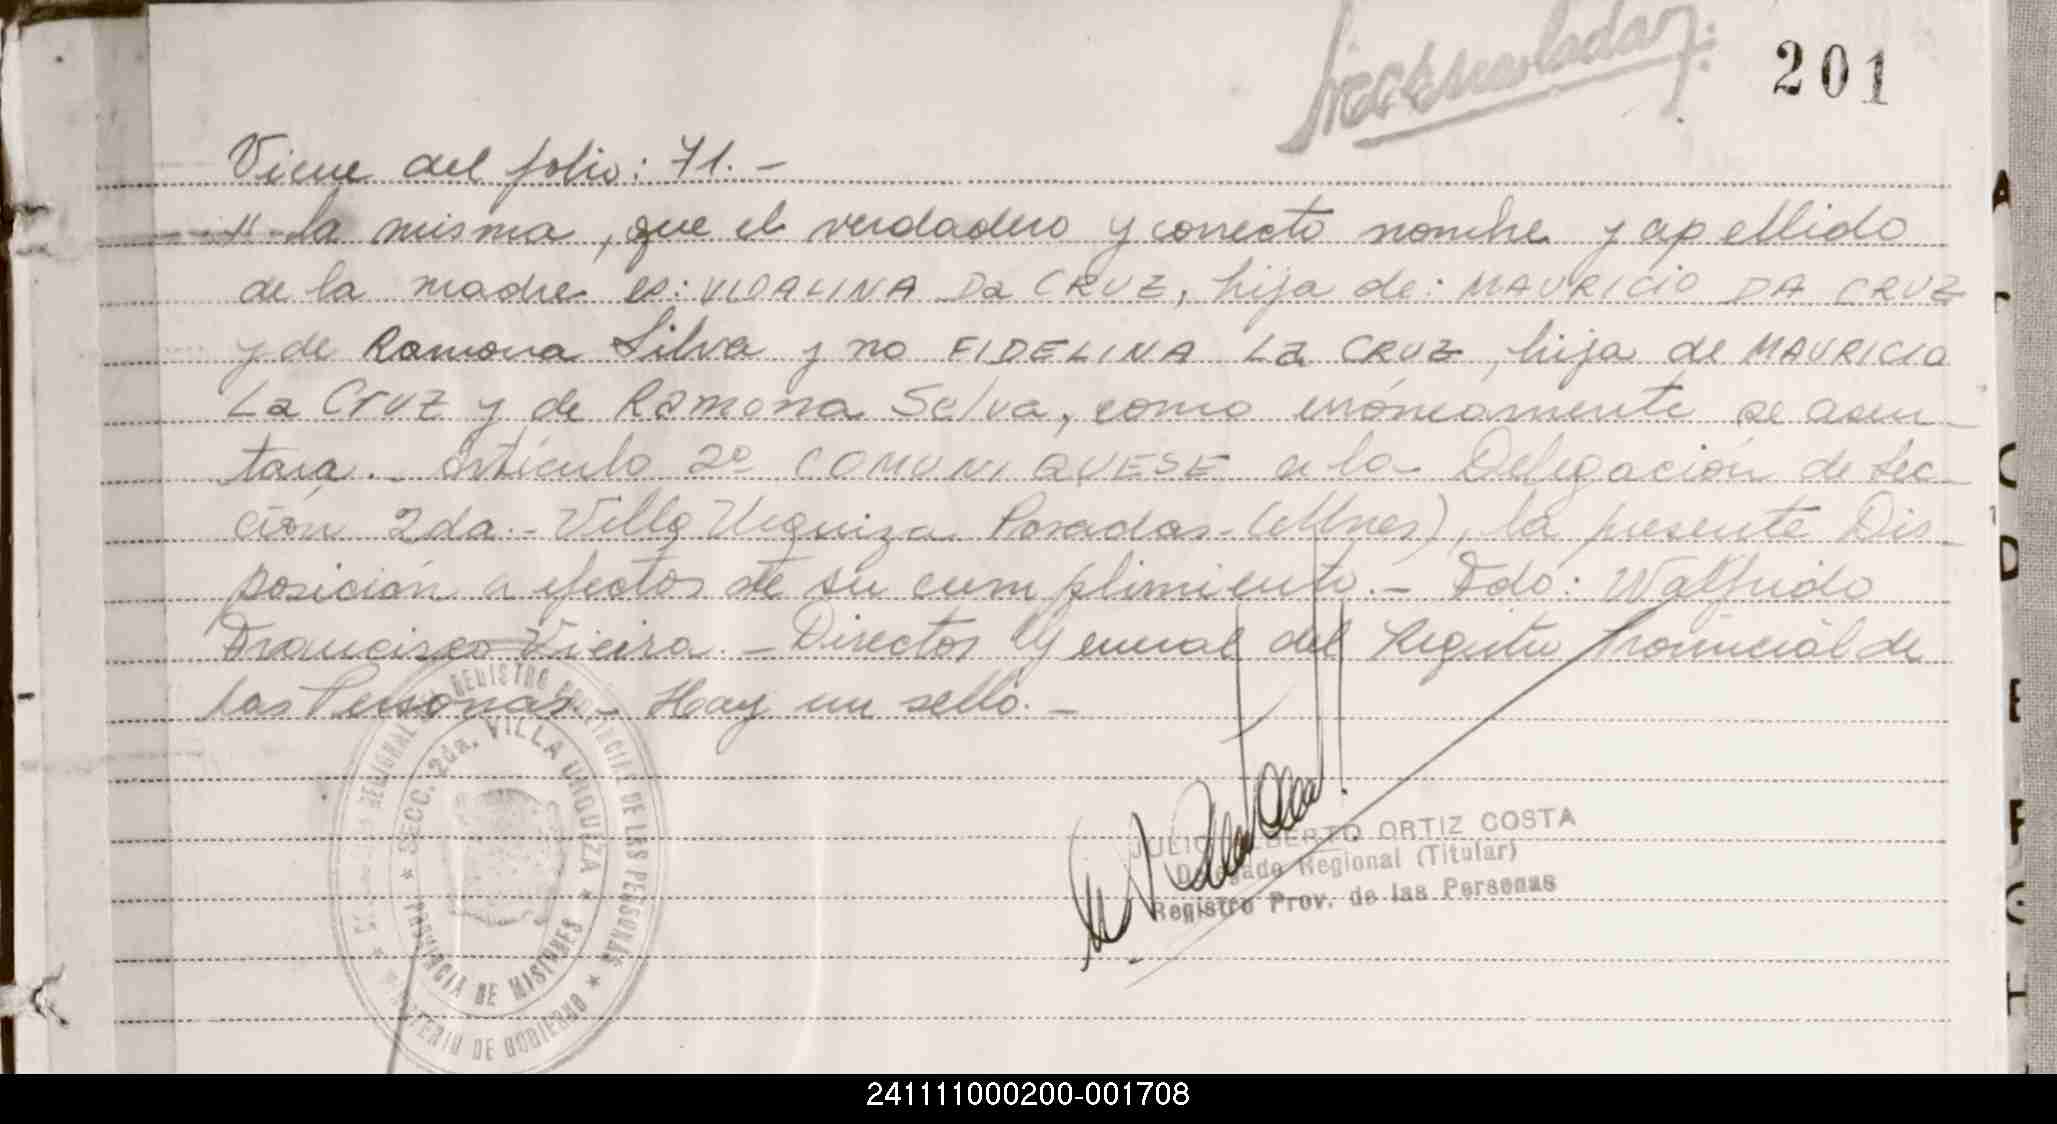 201
Viene del folio: 71.-
" la misma, que el verdadero y correcto nombre y apellido
de la madre es: VIDALINA Da CRUZ, hija de: MAURICIO DA CRUZ
y de Ramona Silva y no FIDELINA La CRUZ, hija de MAURICIO
La Cruz y de Ramona Selva, como erróneamente se asen-
tara.- Artículo 2º COMUNIQUESE a la Delegación de Sec-
ción 2da.- Villa Urquiza Posadas-(Mnes), la presente Dis-
posición a efectos de su cumplimiento.- Fdo: Walfrido
Francisco Vieira.- Director General del Registro Provincial de
las Personas.- Hay un sello.-
REGISTRO PROVINCIAL DE LAS PERSONAS
SECC. 2da. VILLA URQUIZA
PROVINCIA DE MISIONES
MINISTERIO DE GOBIERNO
JULIO ALBERTO ORTIZ COSTA
Delegado Regional (Titular)
Registro Prov. de las Personas
241111000200-001708